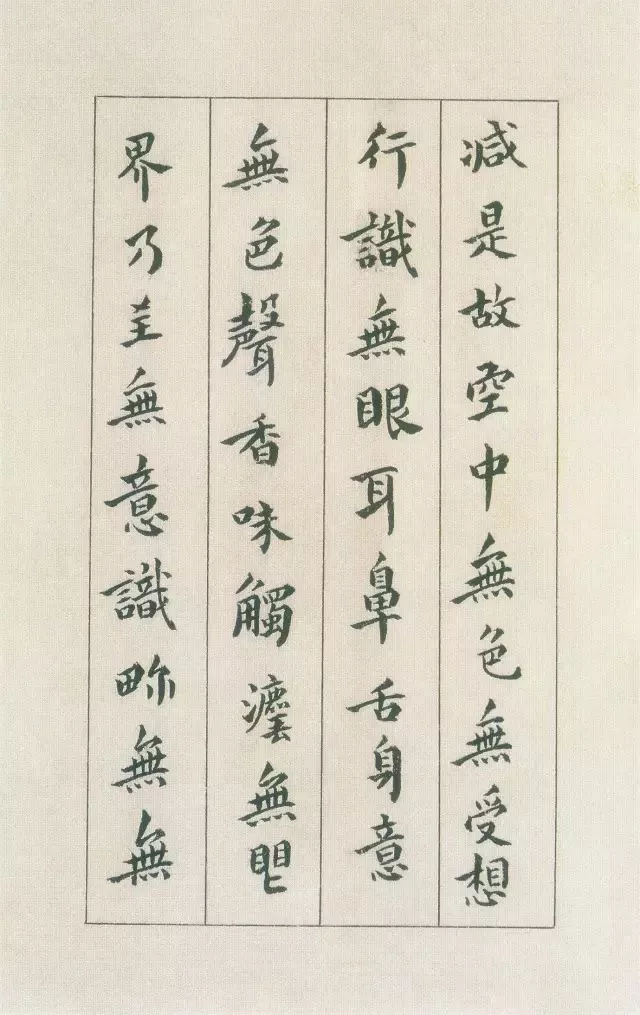 減是故空中無色無受想
行識無眼耳鼻舌身意
無色聲香味觸灋無眼
界乃至無意識畍無無